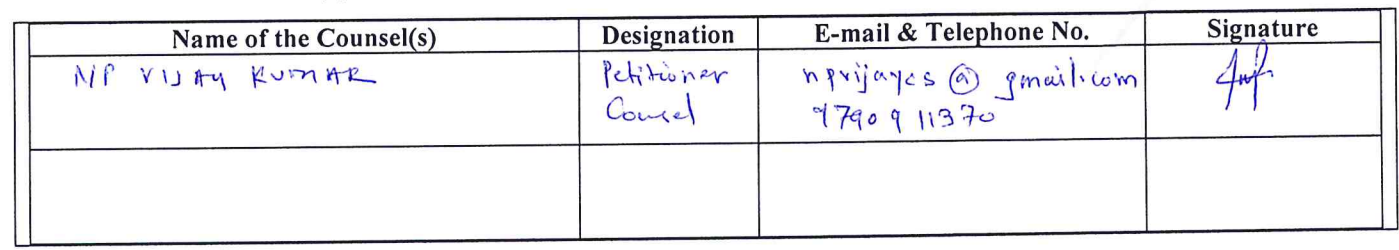 Name of the Counsel(s) Designation E-mail & Telephone No. Signature
N P VIJAY KUMAR Petitioner npvijaycs@gmail.com
Counsel 9790911370